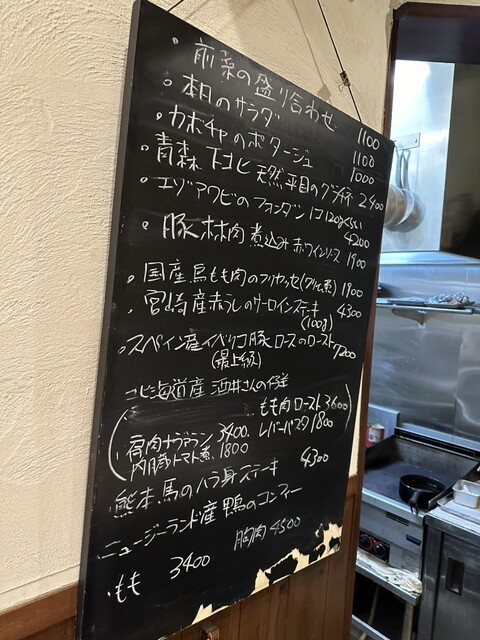 ・前菜の盛り合わせ 1100
・本日のサラダ 1100
・カボチャのポタージュ 1000
・青森 天然平目のグラチネ 2400
・エゾアワビのフォンダン 1コ120gくらい 4200
・豚ホホ肉煮込み 赤ワインソース 1900
・国産鳥もも肉のフリカッセ(クリーム系) 1900
・宮崎産赤うしのサーロインステーキ 4300
(100g)
・スペイン産イベリコ豚ロースのロースト 7200
(最上級)
・北海道産 酒井さんの仔羊
もも肉ロースト 3600
肩肉ナヴァラン 3400. レバーパスタ 1800
内臓トマト煮. 1800
・熊本馬のハラ身ステーキ 4300
・ニュージーランド産鴨のコンフィー
もも 3400 胸肉 4500